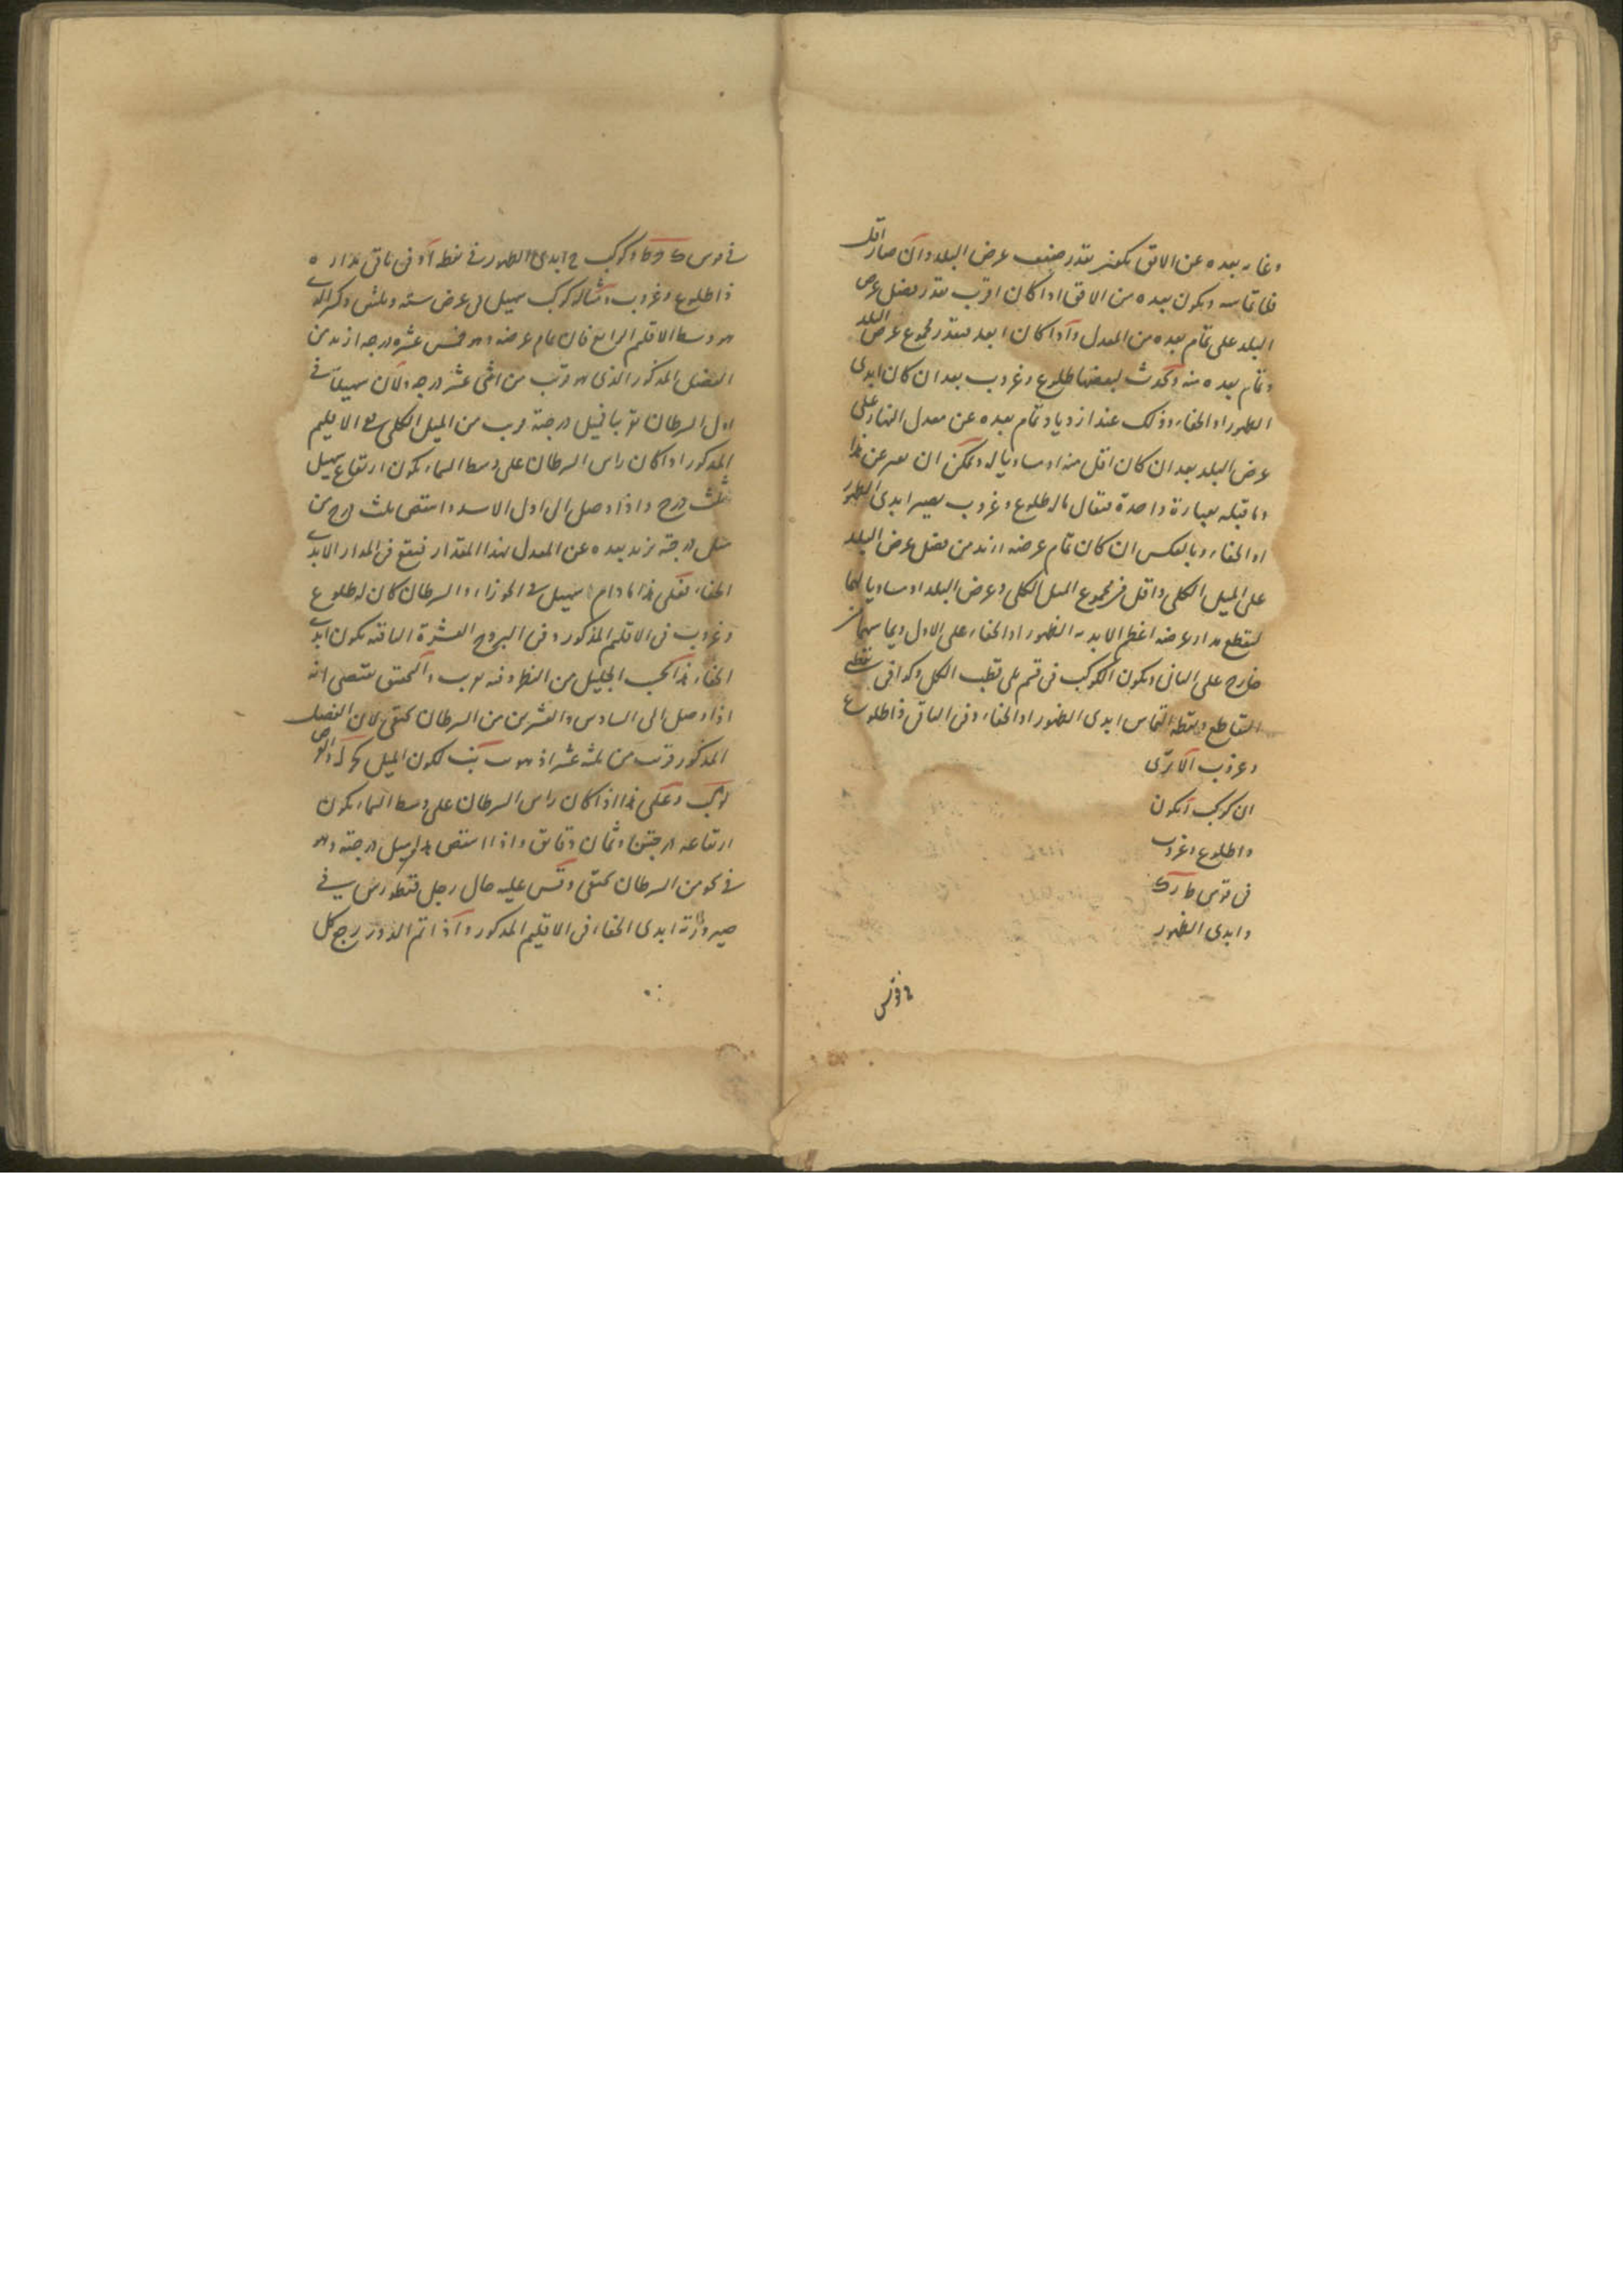 وغاية بعده عن الافق يكون بقدر ضعف عرض البلد وان صار اقل
فلا تماسه ويكون بعده من الافق اذا كان اقرب بقدر فضل عرض
البلد على تمام بعده من المعدل واذا كان ابعد فبقدر مجموع عرض البلد
وتمام بعده منه وتحدث لبعضها طلوع وغروب بعد ان كان ابدى
الظهور او الخفاء وذلك عند ازدياد تمام بعده عن معدل النهار على
عرض البلد بعد ان كان اقل منه او مساويا له ويمكن ان يعبر عن هذا
وما قبله بعبارة واحدة فيقال ماله طلوع وغروب يصير ابدى الظهور
او الخفاء وبالعكس ان كان تمام عرضه ازيد من فضل عرض البلد
على الميل الكلى واقل من مجموع الميل الكلى وعرض البلد او مساويا لهما
ليقطع مدار عرضه اعظم الابدية الظهور او الخفاء على الاول ويماسها من
خارج على الثانى ويكون الكوكب فى قسم يلى قطب الكل وكذا فى نقطتى
التقاطع ونقطة التماس ابدى الظهور او الخفاء وفى الباقى ذا طلوع
وغروب الا ترى
ان كوكب ا يكون
ذا طلوع وغروب
فى قوس ط ر ك
وابدى الظهور
فى قوس ك و ط وكوكب ح ابدى الظهور فى نقطة ا وفى باقى مداره
ذا طلوع وغروب ومثاله كوكب سهيل فى عرض ستة وثلثين وكسر الذى
هو وسط الاقليم الرابع فان تمام عرضه وهو خمس عشره درجه ازيد من
الفضل المذكور الذى هو قريب من اثنى عشر درجه ولان سهيلا فى
اول السرطان تقريبا فيميل درجته قريب من الميل الكلى ففى الاقليم
المذكور اذا كان راس السرطان على وسط السماء يكون ارتفاع سهيل
ثلث درج واذا وصل الى اول الاسد وانتقص ثلث درج من
ميل درجته يزيد بعده عن المعدل بهذا المقدار فيقع فى المدار الابدى
الخفاء فعلى هذا ما دام سهيل فى الجوزاء والسرطان كان له طلوع
وغروب فى الاقليم المذكور وفى البروج العشرة الباقية يكون ابدى
الخفاء هذا بحسب الجليل من النظر وفيه تقريب والتحقيق يقتضى انه
اذا وصل الى السادس والعشرين من السرطان يختفى لان الفضل
المذكور قريب من ثلثة عشر
وعلى هذا اذا كان راس السرطان على وسط السماء يكون
ارتفاعه درجتين وثمان دقايق واذا انتقص هذا من ميل درجته وهو
فى نحو من السرطان يختفى وقس عليه حال رجل قنطورس فى
صيرورته ابدى الخفاء فى الاقليم المذكور واذا تم الدور رجع كل